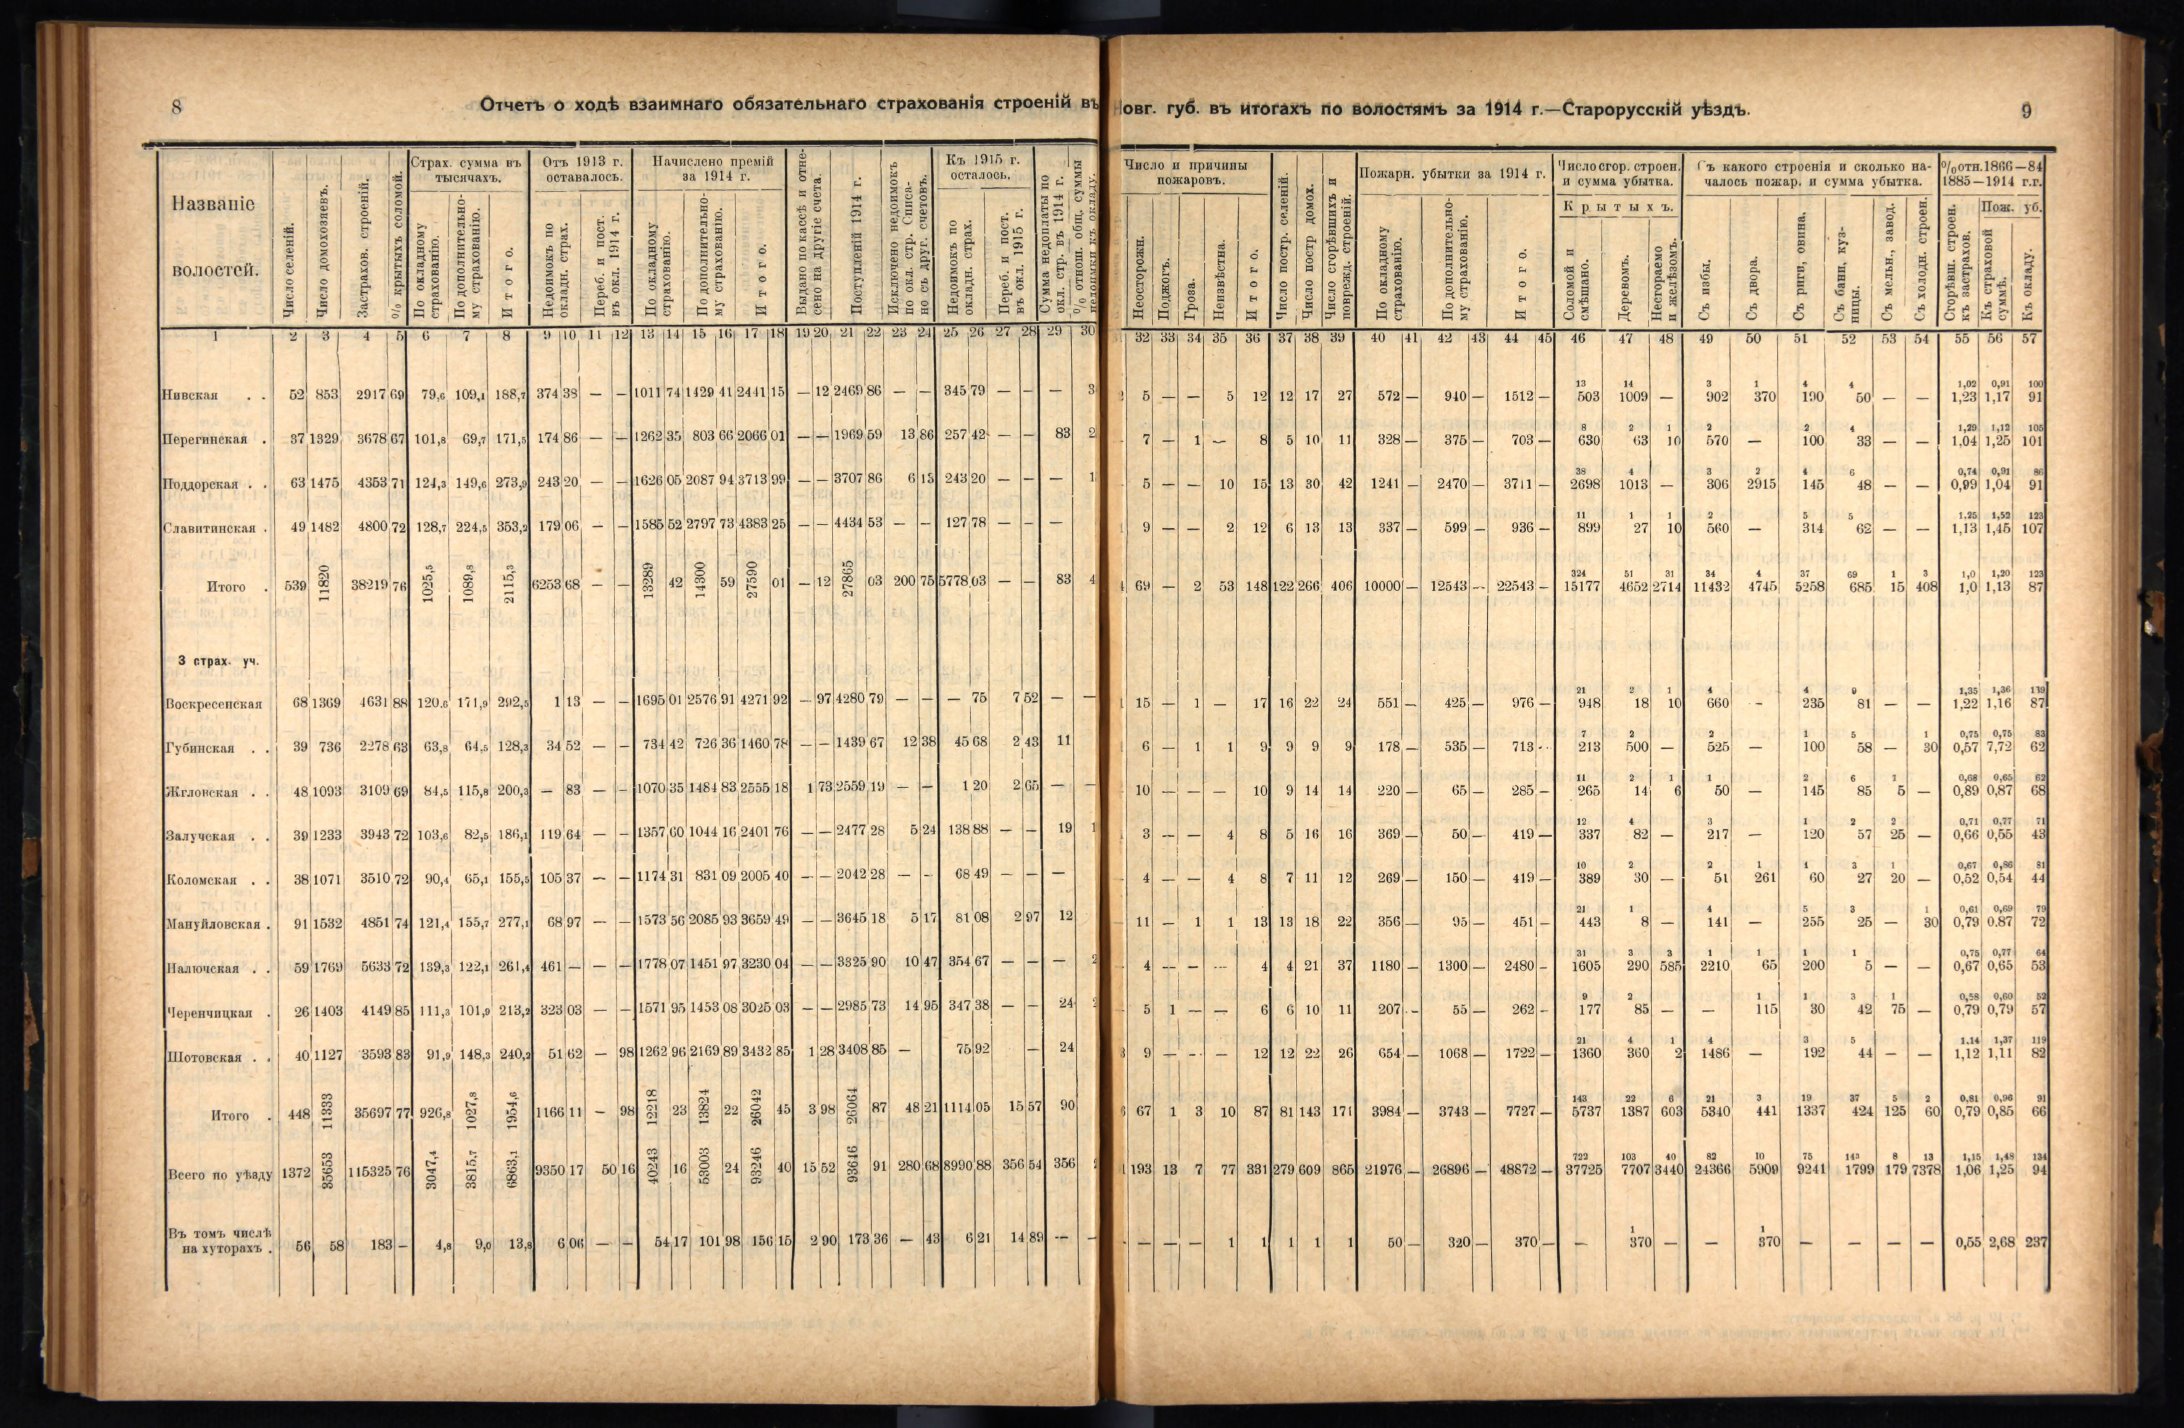 8
Отчетъ о ходѣ взаимнаго обязательнаго страхованія строеній въ
Новг. губ. въ итогахъ по волостямъ за 1914 г.—Старорусскій уѣздъ.
9
Названіе волостей.
Число селеній.
Число домохозяевъ.
Застрахов. строеній.
% крытыхъ соломой.
Страх. сумма въ тысячахъ.
По окладному страхованію.
По дополнительному страхованію.
Итого.
Отъ 1913 г. оставалось.
Недоимокъ по окладн. страх.
Переб. и пост. въ окл. 1914 г.
Начислено премій за 1914 г.
По окладному страхованію.
По дополнительному страхованію.
Итого.
Выдано по кассѣ и отнесено на другіе счета.
Поступленій 1914 г.
Исключено недоимокъ по окл. стр. Списано съ друг. счетовъ.
Къ 1915 г. осталось.
Недоимокъ по окладн. страх.
Переб. и пост. въ окл. 1915 г.
Сумма недоплаты по окл. стр. въ 1914 г.
% отнош. общ. суммы недоимки къ окладу.
Число и причины пожаровъ.
Неосторожн.
Поджогъ.
Гроза.
Неизвѣстна.
Итого.
Число постр. селеній.
Число постр домох.
Число сгорѣвшихъ и поврежд. строеній.
Пожарн. убытки за 1914 г.
По окладному страхованію.
По дополнительному страхованію.
Итого.
Число сгор. строен. и сумма убытка.
Крытыхъ.
Соломой и смѣшано.
Деревомъ.
Несгораемо и желѣзомъ.
Съ какого строенія и сколько началось пожар. и сумма убытка.
Съ избы.
Съ двора.
Съ риги, овина.
Съ бани, кузницы.
Съ мельн., завод.
Съ холодн. строен.
% отн. 1866—84 1885—1914 г.г.
Сгорѣвш. строен. къ застрахов.
Пож. уб.
Къ страховой суммѣ.
Къ окладу.
1 2 3 4 5 6 7 8 9 10 11 12 13 14 15 16 17 18 19 20 21 22 23 24 25 26 27 28 29 30
32 33 34 35 36 37 38 39 40 41 42 43 44 45 46 47 48 49 50 51 52 53 54 55 56 57
13 14 3 1 4 4 1,02 0,91 100
Нивская . . 52 853 2917 69 79,6 109,1 188,7 374 38 — — 1011 74 1429 41 2441 15 — 12 2469 86 — — 345 79 — — — 3 5 — — 5 12 12 17 27 572 — 940 — 1512 — 503 1009 — 902 370 190 50 — — 1,23 1,17 91
8 2 1 2 2 4 1,29 1,12 105
Перегинская . 37 1329 3678 67 101,8 69,7 171,5 174 86 — — 1262 35 803 66 2066 01 — — 1969 59 13 86 257 42 — — 83 2 7 — 1 — 8 5 10 11 328 — 375 — 703 — 630 63 10 570 — 100 33 — — 1,04 1,25 101
38 4 3 2 4 6 0,74 0,91 86
Поддорская . . 63 1475 4353 71 124,3 149,6 273,9 243 20 — — 1626 05 2087 94 3713 99 — — 3707 86 6 13 243 20 — — — 1 5 — — 10 15 13 30 42 1241 — 2470 — 3711 — 2698 1013 — 306 2915 145 48 — — 0,99 1,04 91
11 1 1 2 5 5 1,25 1,52 123
Славитинская . 49 1482 4800 72 128,7 224,5 353,2 179 06 — — 1585 52 2797 73 4383 25 — — 4434 53 — — 127 78 — — — 9 — — 2 12 6 13 13 337 — 599 — 936 — 899 27 10 560 — 314 62 — — 1,13 1,45 107
324 51 31 34 4 37 69 1 3 1,0 1,20 123
Итого . 539 11820 38219 76 1025,5 1089,8 2115,3 6253 68 — — 13289 42 14300 59 27590 01 — 12 27865 03 200 75 5778 03 — — 83 4 69 — 2 53 148 122 266 406 10000 — 12543 — 22543 — 15177 4652 2714 11432 4745 5258 685 15 408 1,0 1,13 87
3 страх. уч.
21 2 1 4 4 9 1,35 1,36 119
Воскресенская 68 1369 4631 88 120,6 171,9 292,5 1 13 — — 1695 01 2576 91 4271 92 — 97 4280 79 — — — 75 7 52 — — 15 — 1 — 17 16 22 24 551 — 425 — 976 — 948 18 10 660 — 235 81 — — 1,22 1,16 87
7 2 2 1 5 1 0,75 0,75 83
Губинская . . 39 736 2278 63 63,8 64,5 128,3 34 52 — — 734 42 726 36 1460 78 — — 1439 67 12 38 45 68 2 43 11 6 — 1 1 9 9 9 9 178 — 535 — 713 — 213 500 — 525 — 100 58 — 30 0,57 7,72 62
11 2 1 1 2 6 1 0,68 0,65 62
Жгловская . . 48 1093 3109 69 84,5 115,8 200,3 — 83 — — 1070 35 1484 83 2555 18 1 73 2559 19 — — 1 20 2 65 — — 10 — — — 10 9 14 14 220 — 65 — 285 — 265 14 6 50 — 145 85 5 — 0,89 0,87 68
12 4 3 1 2 2 0,71 0,77 71
Залучская . . 39 1233 3943 72 103,6 82,5 186,1 119 64 — — 1357 60 1044 16 2401 76 — — 2477 28 5 24 138 88 — — 19 1 3 — — 4 8 5 16 16 369 — 50 — 419 — 337 82 — 217 — 120 57 25 — 0,66 0,55 43
10 2 2 1 1 3 1 0,67 0,86 81
Коломская . . 38 1071 3510 72 90,4 65,1 155,5 105 37 — — 1174 31 831 09 2005 40 — — 2042 28 — — 68 49 — — — 4 — — 4 8 7 11 12 269 — 150 — 419 — 389 30 — 51 261 60 27 20 — 0,52 0,54 44
21 1 4 5 3 1 0,61 0,69 79
Мануйловская . 91 1532 4851 74 121,4 155,7 277,1 68 97 — — 1573 56 2085 93 3659 49 — — 3645 18 5 17 81 08 2 97 12 11 — 1 1 13 13 18 22 356 — 95 — 451 — 443 8 — 141 — 255 25 — 30 0,79 0.87 72
31 3 3 1 1 1 1 0,75 0,77 64
Налючская . . 59 1769 5633 72 139,3 122,1 261,4 461 — — — 1778 07 1451 97 3230 04 — — 3325 90 10 47 354 67 — — — 2 4 — — — 4 4 21 37 1180 — 1300 — 2480 — 1605 290 585 2210 65 200 5 — — 0,67 0,65 53
9 2 1 1 3 1 0,58 0,60 52
Черенчицкая . 26 1403 4149 85 111,3 101,9 213,2 323 03 — — 1571 95 1453 08 3025 03 — — 2985 73 14 95 347 38 — — 24 2 5 1 — — 6 6 10 11 207 — 55 — 262 — 177 85 — — 115 30 42 75 — 0,79 0,79 57
21 4 1 4 3 5 1.14 1,37 119
Шотовская . . 40 1127 3593 83 91,9 148,3 240,2 51 62 — 98 1262 96 2169 89 3432 85 1 28 3408 85 — 75 92 — 24 9 — — — 12 12 22 26 654 — 1068 — 1722 — 1360 360 2 1486 — 192 44 — — 1,12 1,11 82
143 22 6 21 3 19 37 5 2 0,81 0,96 91
Итого . 448 11333 35697 77 926,8 1027,8 1954,6 1166 11 — 98 12218 23 13824 22 26042 45 3 98 26064 87 48 21 1114 05 15 57 90 67 1 3 10 87 81 143 171 3984 — 3743 — 7727 — 5737 1387 603 5340 441 1337 424 125 60 0,79 0,85 66
722 103 40 82 10 75 143 8 13 1,15 1,48 134
Всего по уѣзду 1372 35653 115325 76 3047,4 3815,7 6863,1 9350 17 50 16 40243 16 53003 24 93246 40 15 52 93646 91 280 68 8990 88 356 54 356 193 13 7 77 331 279 609 865 21976 — 26896 — 48872 — 37725 7707 3440 24366 5909 9241 1799 179 7378 1,06 1,25 94
1 1
Въ томъ числѣ на хуторахъ . 56 58 183 — 4,8 9,0 13,8 6 06 — — 54 17 101 98 156 15 2 90 173 36 — 43 6 21 14 89 — — — — — 1 1 1 1 1 50 — 320 — 370 — — 370 — — 370 — — — — 0,55 2,68 237